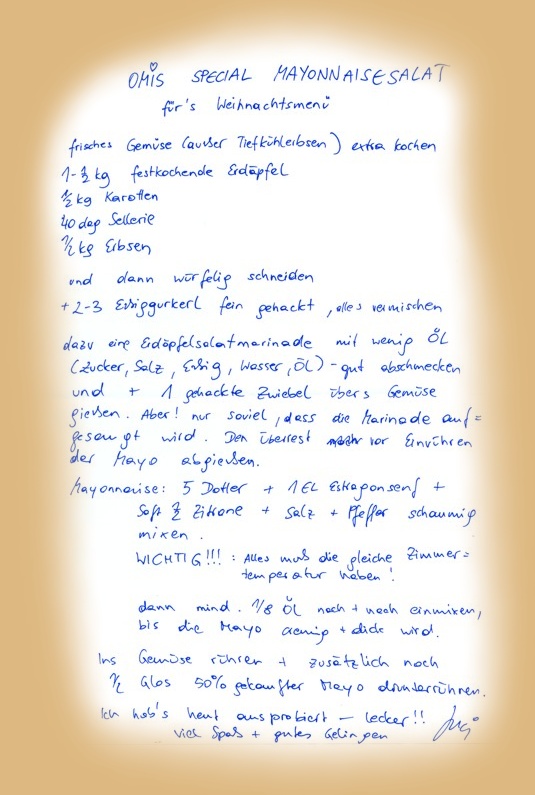 OMIS SPECIAL MAYONNAISESALAT
für's Weihnachtsmenü
frisches Gemüse (außer Tiefkühlerbsen) extra kochen
1-½ kg festkochende Erdäpfel
½ kg Karotten
40 dag Sellerie
½ kg Erbsen
und dann würfelig schneiden
+ 2-3 Essiggurkerl fein gehackt, alles vermischen
dazu eine Erdäpfelsalatmarinade mit wenig ÖL
(Zucker, Salz, Essig, Wasser, ÖL) - gut abschmecken
und + 1 gehackte Zwiebel übers Gemüse
gießen. Aber! nur soviel, dass die Marinade auf=
gesaugt wird. Den Überrest vor Einrühren
der Mayo abgießen.
Mayonnaise: 5 Dotter + 1 EL Estragonsenf +
Saft ½ Zitrone + Salz + Pfeffer schaumig
mixen.
WICHTIG!!! : Alles muß die gleiche Zimmer=
temperatur haben!
dann mind. 1/8 ÖL nach + nach einmixen,
bis die Mayo cremig + dick wird.
Ins Gemüse rühren + zusätzlich noch
½ Glas 50% gekaufter Mayo drunterrühren.
Ich hab's heut ausprobiert - lecker!!
viel Spaß + gutes Gelingen